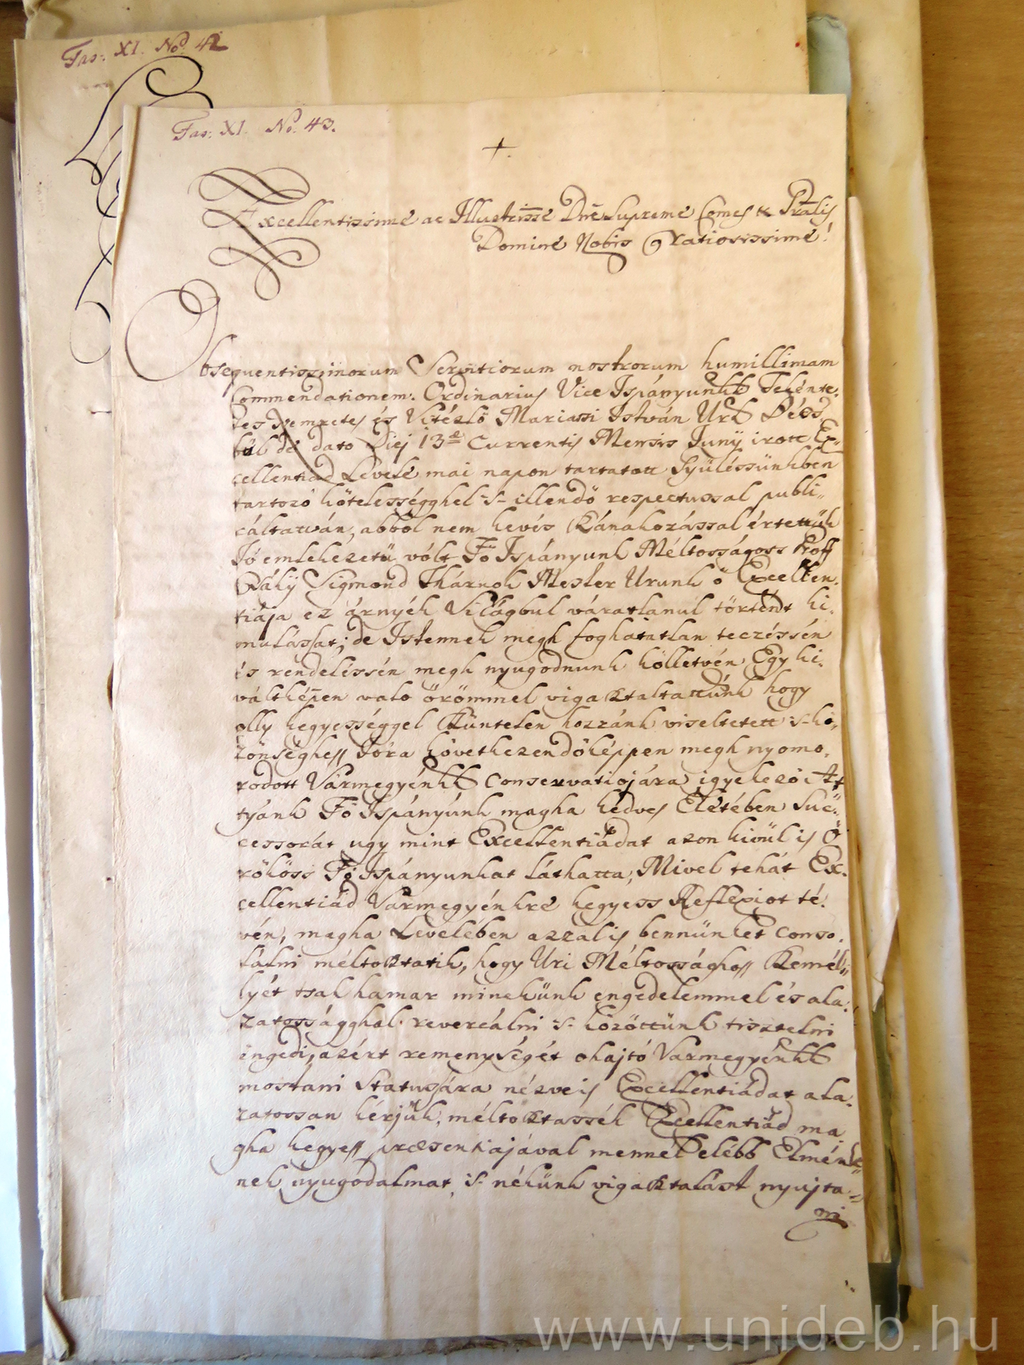 Fas: XI. No. 42
Fas: XI. No. 43.
Excellentissime ac Illustrisse Dne Supreme Comes &c Pralis
Domine Nobis Gratiosissime!
Obsequentissimorum Servitiorum nostrorum humillimam
Commendationem. Ordinarius Vice Ispányunkk Tekénte-
tes Nemzetes és Vitézlő Mariassi István Urk
de dato Diej 13ª Currentis Mensis Junÿ irott Ex-
cellentiád Levele mai napon tartatott Gyüléssünkben
tartozó kötelességghel 's illendő respectussal publi-
cáltatván, abból nem kevés Szánakozással értettük
Jó emlekezetü vólt Fő Ispányunk Méltosságoss Groff
Sigmond Thárnok Mester Urunk ő Excellen-
tiája ez árnyék Világbul váratlanúl történt ki-
mulássat; de Istennek megh foghatatlan teczéssén
és rendeléssén megh nyugodnunk kölletvén, Egy ki-
váltképen való örömmel vigasztaltattúnk hogy
olly kegyességgel szüntelen hozzánk viseltetett 's kö-
zönséghess Jóra következendőképpen megh nyomo-
rodott Vármegyénkk Conservatiojára igyekező At-
tyánk Fő Ispányúnk magha kedves Életében Suc-
cessorát ugy mint Excellentiádat azon kivül is Ö
rököss Fő Ispányunkat láthatta; Mivel tehát Ex-
cellentiád Vármegyénkre kegyess Reflexiot té-
vén, magha Levelében azzal is bennünket conso-
lálni méltoztatik, hogy Úri Méltossághoss Szemé-
lyét tsak hamar minekünk engedelemmel és ala-
zatosságghal revereálni 's közöttünk tisztelni
ingedi, azért remenységét ohajtó Vármegyénkk
mostani Statussára nézve is Excellentiádat ala-
zatossan kérjük, méltoztassék Excellentiád ma
gha kegyess præsentiajával mennel elébb Elménk-
nek nyugodalmat, 's nékünk vigasztalást nyujta-
ni
www.unideb.hu